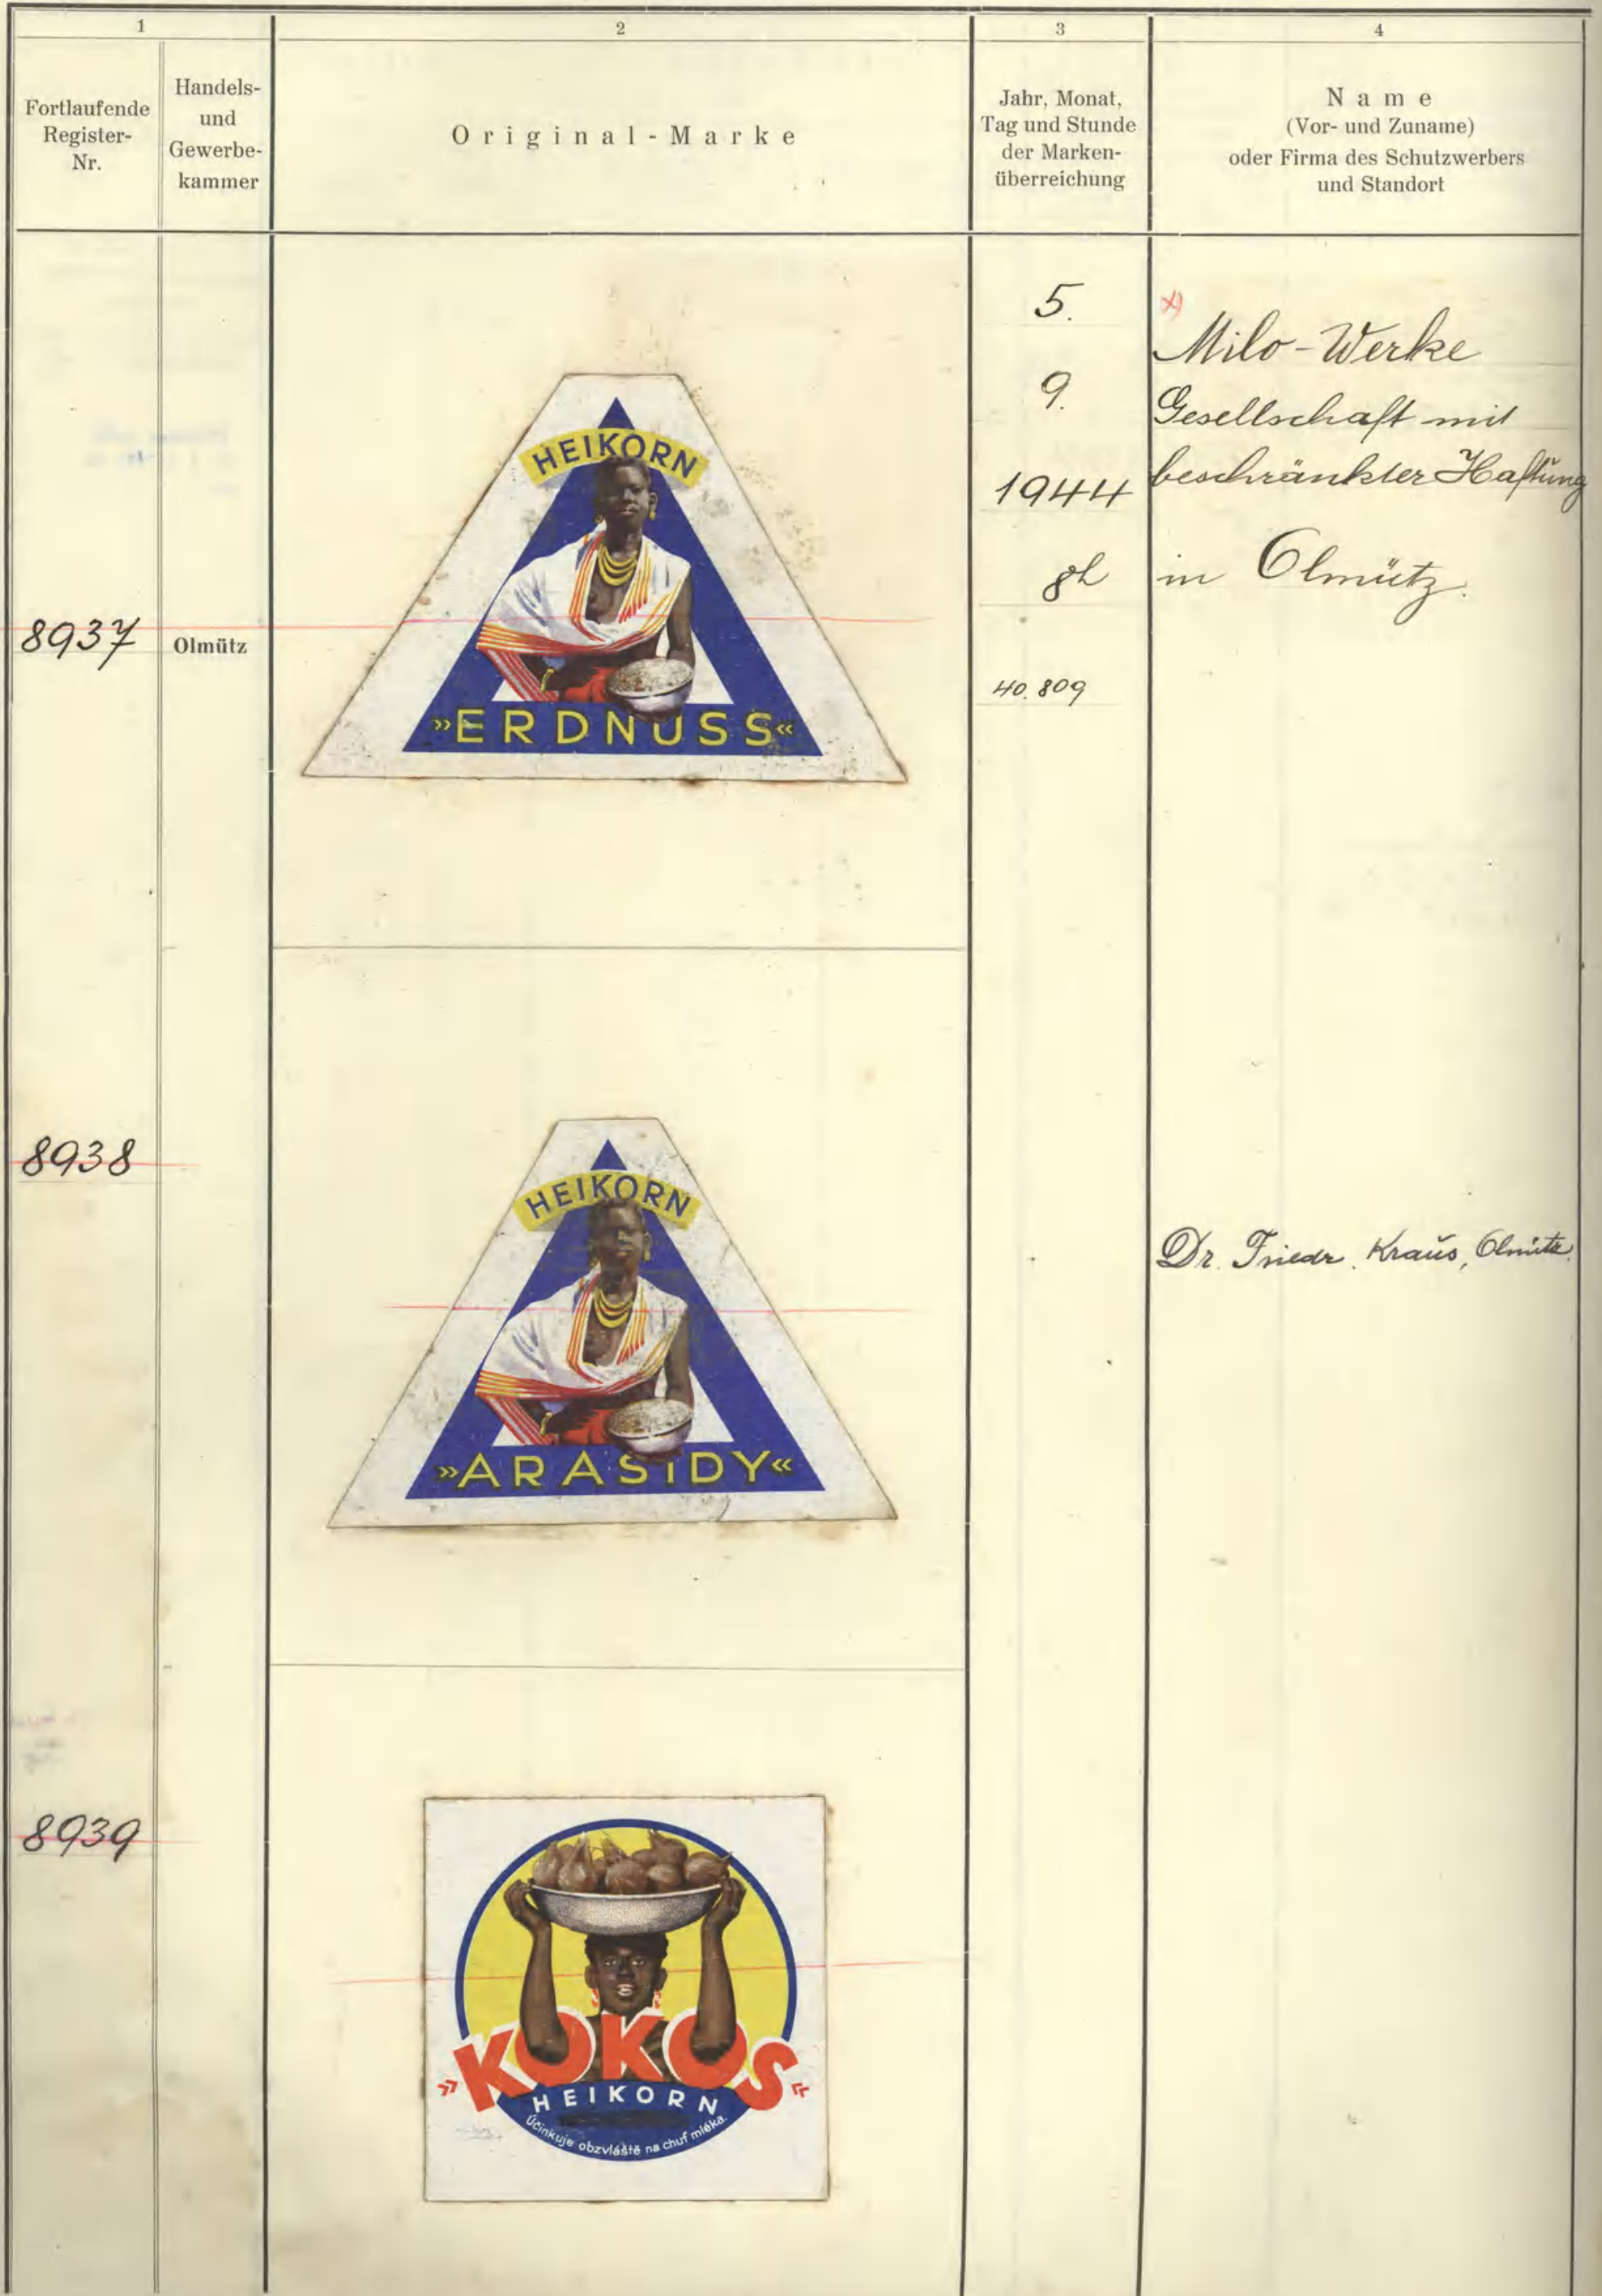 1
2
3
4
Fortlaufende
Register-
Nr.
Handels-
und
Gewerbe-
kammer
Original-Marke
Jahr, Monat,
Tag und Stunde
der Marken-
überreichung
Name
(Vor- und Zuname)
oder Firma des Schutzwerbers
und Standort
8937
Olmütz
HEIKORN
»ERDNUSS«
5.
9.
1944
8h
40.809
x)
Milo-Werke
Gesellschaft mit
beschränkter Haftung
in Olmütz.
8938
HEIKORN
»ARASIDY«
Dr. Friedr. Kraus, Olmütz.
8939
»KOKOS«
HEIKORN
Účinkuje obzvláště na chuť mléka.